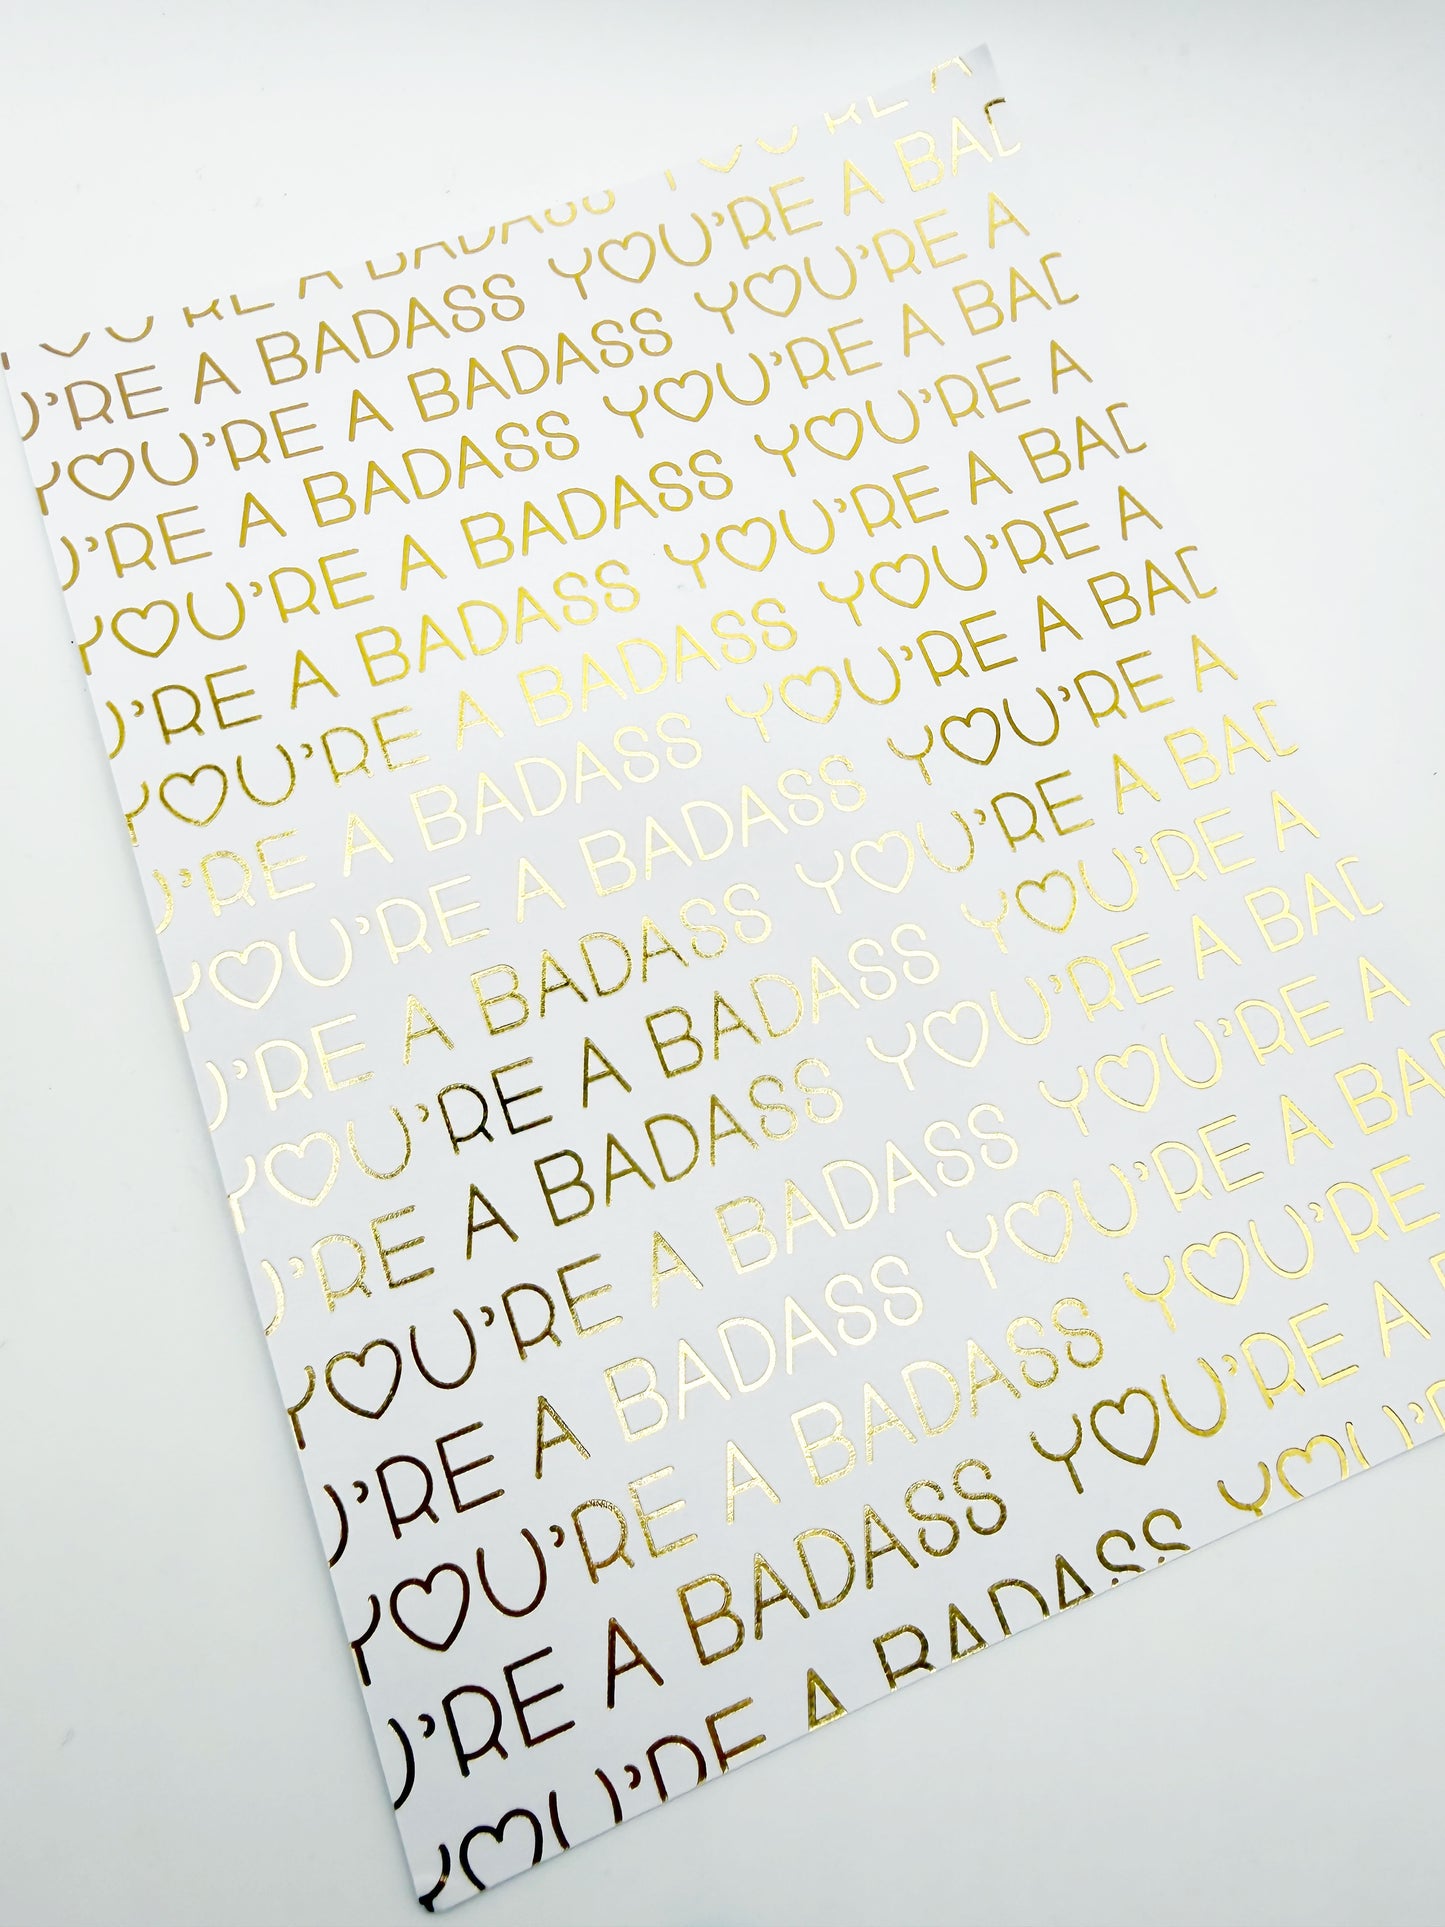 YOU'RE A BADASS YOU'RE A
U'RE A BADASS YOU'RE A BAD
YOU'RE A BADASS YOU'RE A
U'RE A BADASS YOU'RE A BAD
YOU'RE A BADASS YOU'RE A
U'RE A BADASS YOU'RE A BAD
YOU'RE A BADASS YOU'RE A
U'RE A BADASS YOU'RE A BAD
YOU'RE A BADASS YOU'RE A
U'RE A BADASS YOU'RE A BAD
YOU'RE A BADASS YOU'RE A
U'RE A BADASS YOU'RE A BAD
YOU'RE A BADASS YOU'RE A
U'RE A BADASS YOU'RE A BA
YOU'RE A BADASS YOU'RE
U'RE A BADASS YOU'RE A
YOU'RE A BADASS YOU'R